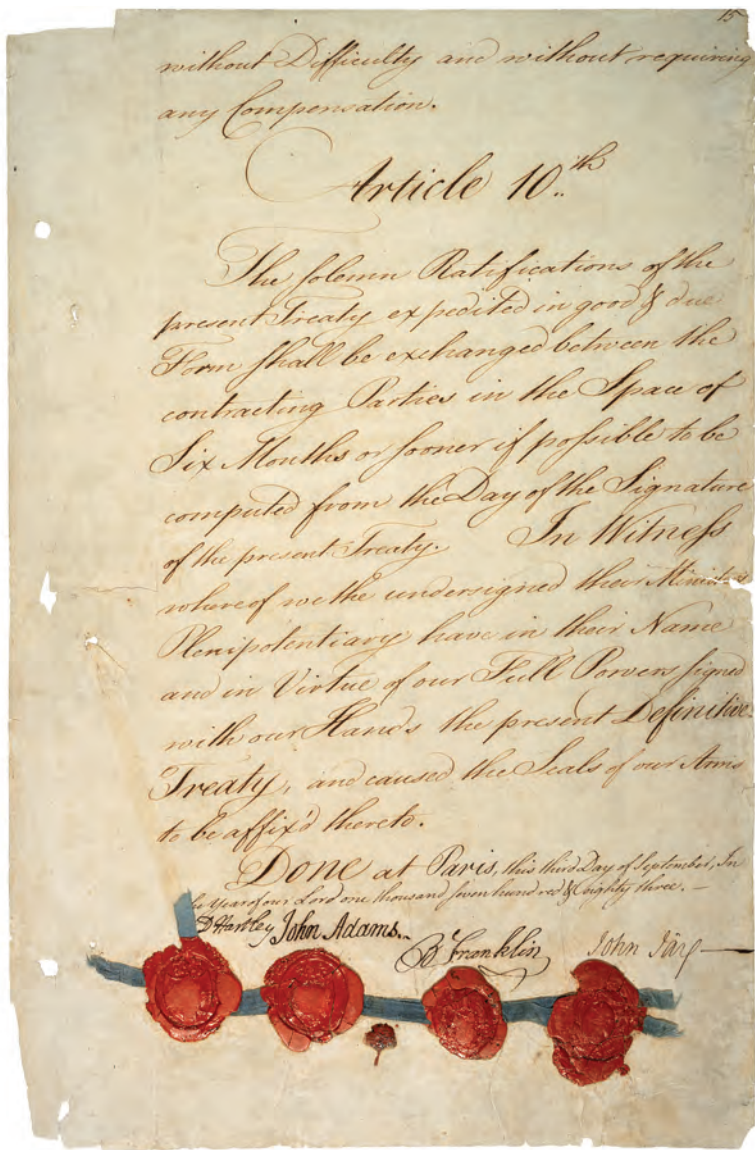 15
without Difficulty and without requiring
any Compensation.
Article 10.th
The solemn Ratifications of the
present Treaty expedited in good & due
Form shall be exchanged between the
contracting Parties in the Space of
Six Months or sooner if possible to be
computed from the Day of the Signature
of the present Treaty. In Witness
whereof we the undersigned their Ministers
Plenipotentiary have in their Name
and in Virtue of our Full Powers signed
with our Hands the present Definitive
Treaty, and caused the Seals of our Arms
to be affix'd thereto.
DONE at Paris, this third Day of September, In
the Year of our Lord one thousand seven hundred & eighty three. —
D Hartley John Adams. B Franklin John Jay —